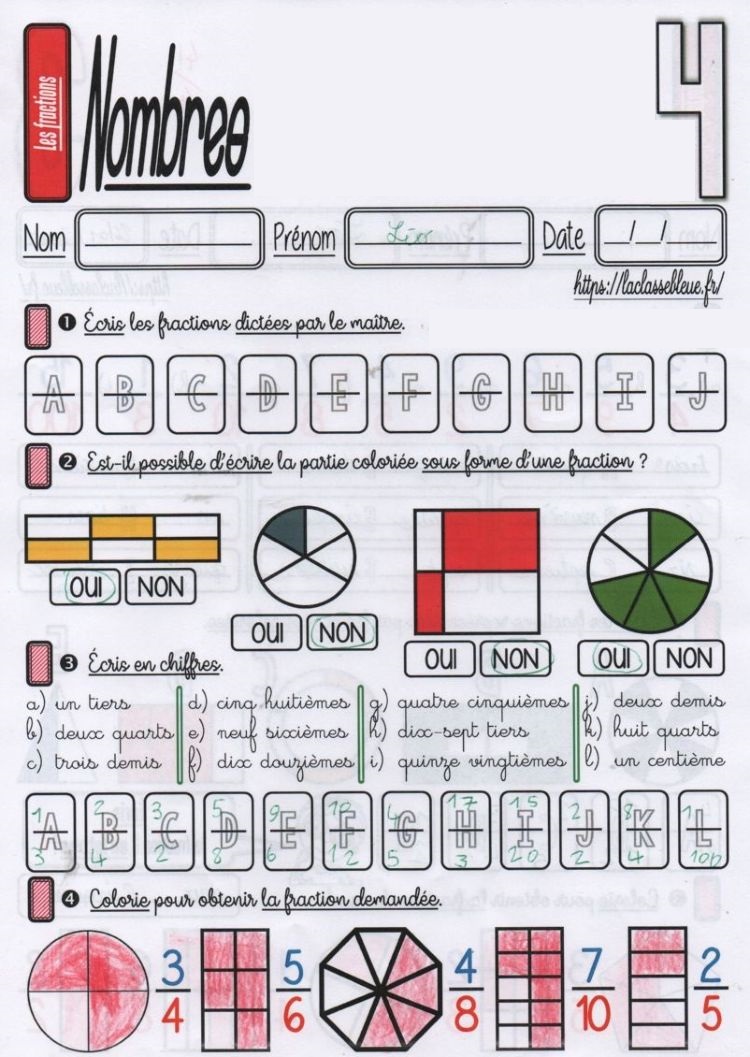 Les fractions
Nombres
4
Nom Prénom Date / /
https://laclassebleue.fr/
❶ Écris les fractions dictées par le maître.
A B C D E F G H I J
❷ Est-il possible d'écrire la partie coloriée sous forme d'une fraction ?
OUI NON
OUI NON
OUI NON
OUI NON
❸ Écris en chiffres.
a) un tiers d) cinq huitièmes g) quatre cinquièmes j) deux demis
b) deux quarts e) neuf sixièmes h) dix-sept tiers k) huit quarts
c) trois demis f) dix douzièmes i) quinze vingtièmes l) un centième
1 2 3 5 9 10 4 17 15 2 8 1
A B C D E F G H I J K L
3 4 2 8 6 12 5 3 20 2 4 100
❹ Colorie pour obtenir la fraction demandée.
3 5 4 7 2
4 6 8 10 5